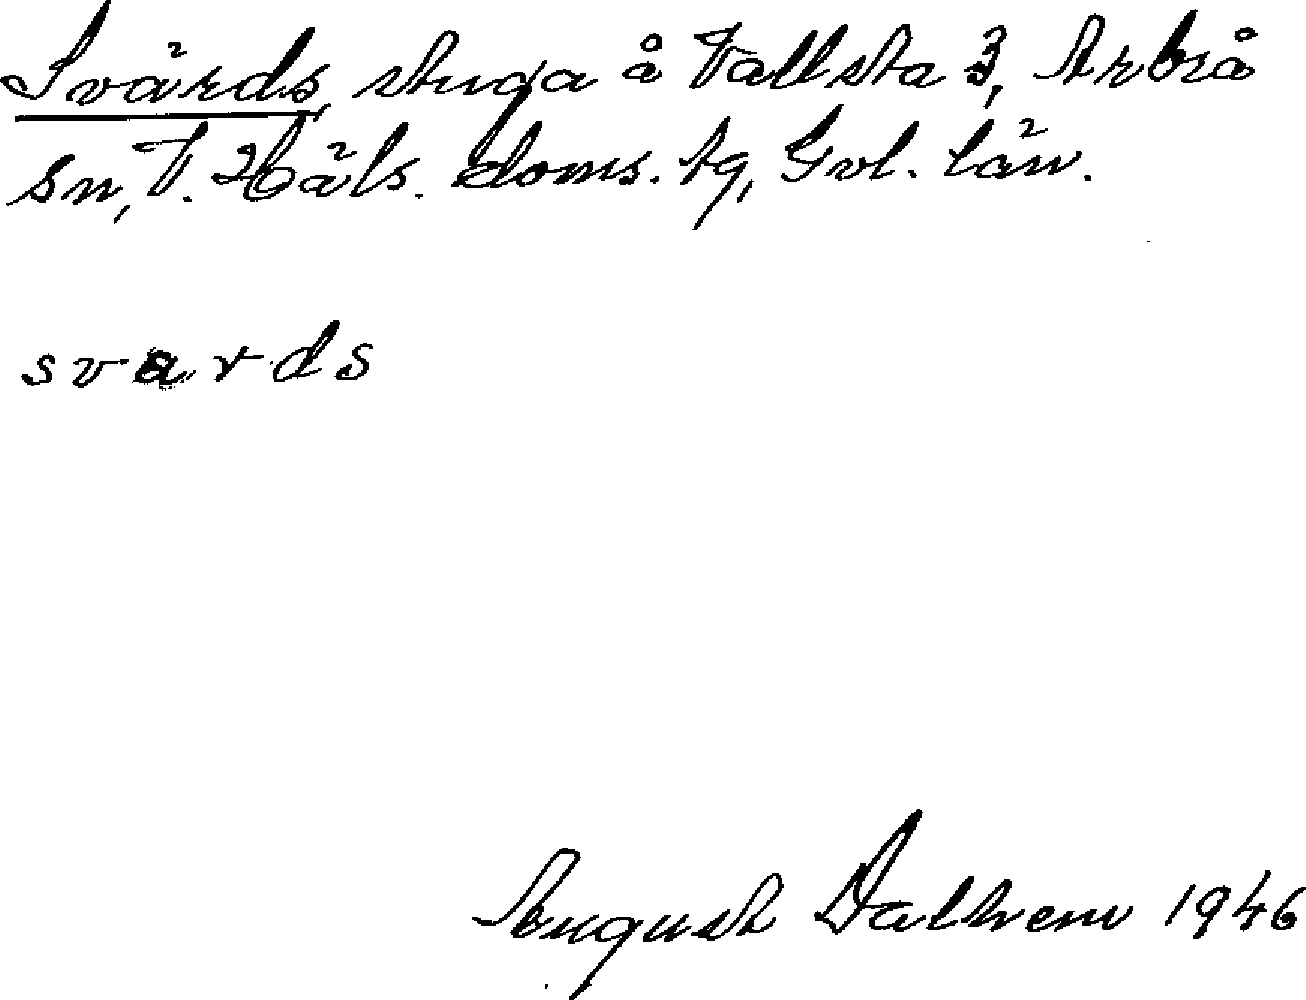 Svärds, stuga å Vallsta 3, Arbrå
sn, V. Häls. doms. tg, Gvl. län.
svards
August Dalhem 1946